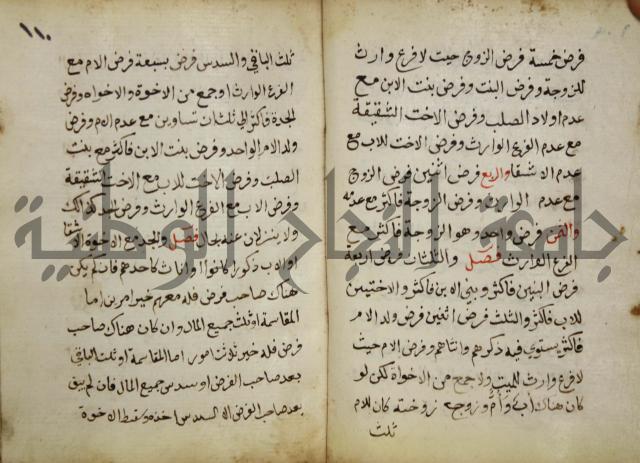 فرض خمسة فرض الزوج حيث لا فرع وارث
للزوجة وفرض البنت وفرض بنت الابن مع
عدم اولاد الصلب وفرض الاخت الشقيقة
مع عدم الفرع الوارث وفرض الاخت للاب مع
عدم الاشقا والربع فرض اثنين فرض الزوج
مع عدم الوارث وفرض الزوجة فاكثر مع عدمه
والثمن فرض واحد وهو الزوجة فاكثر مع
الفرع الوارث فصل والثلثان فرض اربعة
فرض البنتين فاكثر وبنتي الابن فاكثر والاختين
للاب فاكثر والثلث فرض اثنين فرض ولد الام
فاكثر يستوي فيه ذكرهم وانثاهم وفرض الام حيث
لا فرع وارث للميت ولا جمع من الاخوة لكن لو
كان هناك اب وام وزوج زوجته كان للام
ثلث
١١٠
ثلث الباقي والسدس فرض سبعة فرض الام مع
الفرع الوارث او جمع من الاخوة والاخواة وفرض
الجدة فاكثر الى ثلاث تساوين مع عدم الام وفرض
ولد الام الواحد وفرض بنت الابن فاكثر مع بنت
الصلب وفرض الاخت للاب مع الاخت الشقيقة
وفرض الاب مع الفرع الوارث وفرض الجد كذلك
ولا ينزلان عنه بحال فصل والجد مع الاخوة الاشقا
او الاب ذكورا كانوا او اناث كاحدهم فان لم يكن
هناك صاحب فرض فله معهم خير امرين اما
المقاسمة او ثلث جميع المال وان كان هناك صاحب
فرض فله خير ثلاث امور اما المقاسمة او ثلث الباقي
بعد صاحب الفرض او سدس جميع المال فان لم يبق
بعد صاحب الفرض الا السدس اخذه وسقط الاخوة
جامعة النجاح الوطنية